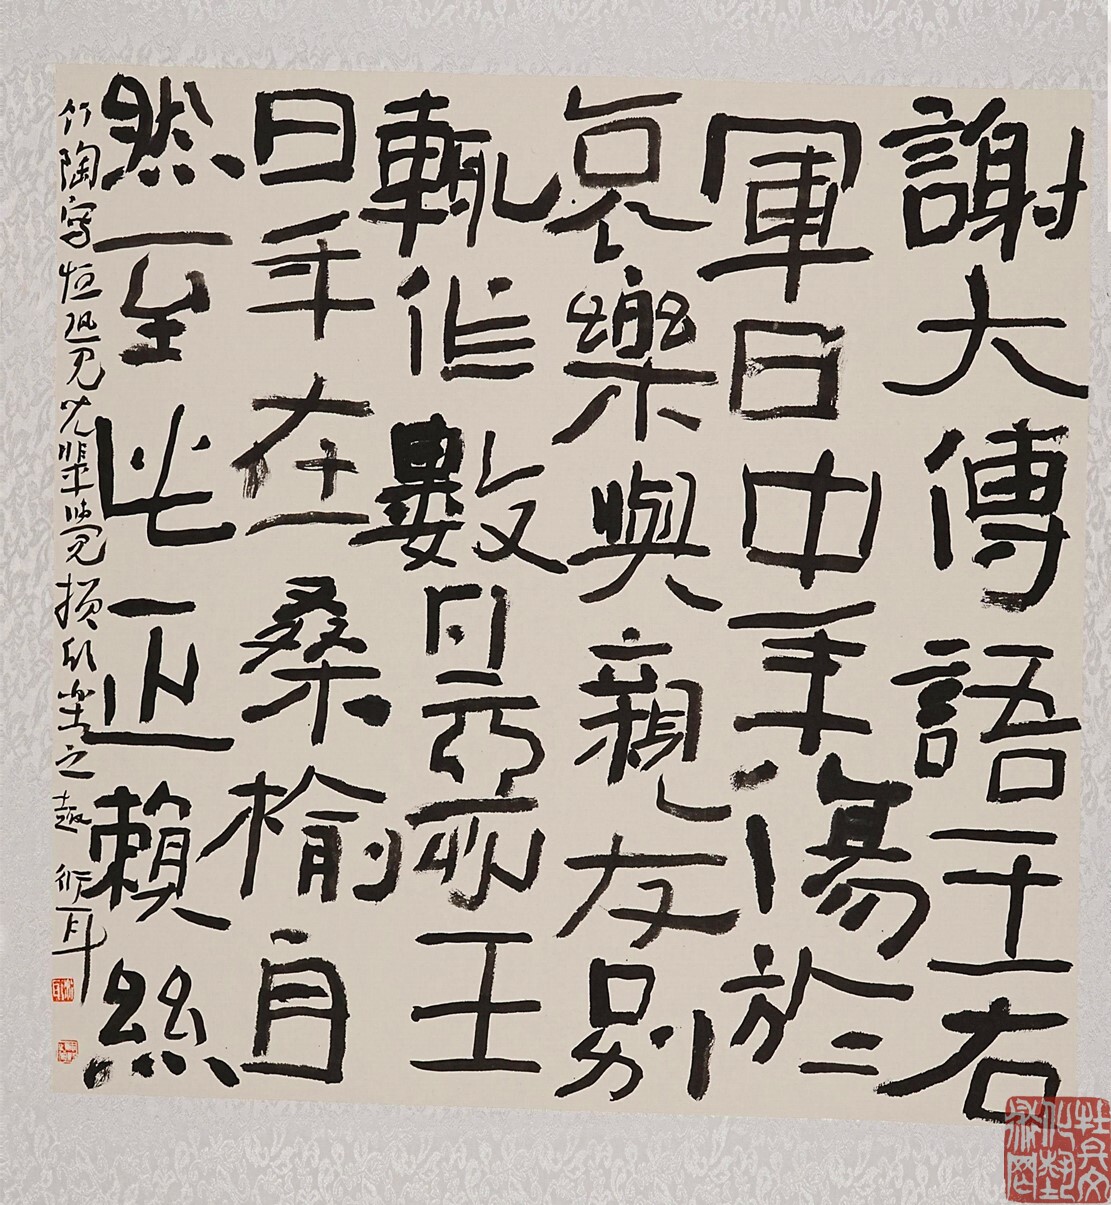 謝大傅語王右
軍曰中年傷於
哀樂與親友別
輒作數日惡王
曰年在桑榆自
然至此正賴絲
竹陶寫恒恐兒輩覺損欣樂之趣